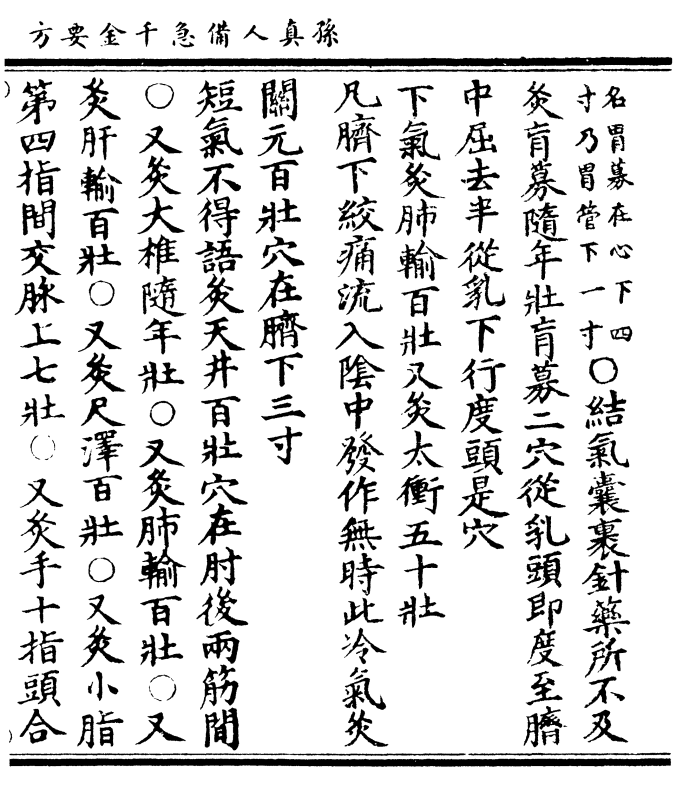 孫真人備急千金要方
名胃募在心下四
寸乃胃管下一寸
〇結氣囊裹針藥所不及
灸肓募隨年壯肓募二穴從乳頭即度至臍
中屈去半從乳下行度頭是穴
下氣灸肺輸百壯又灸太衝五十壯
凡臍下絞痛流入陰中發作無時此冷氣灸
關元百壯穴在臍下三寸
短氣不得語灸天井百壯穴在肘後兩筋間
〇又灸大椎隨年壯〇又灸肺輸百壯〇又
灸肝輸百壯〇又灸尺澤百壯〇又灸小指
第四指間交脉上七壯〇又灸手十指頭合